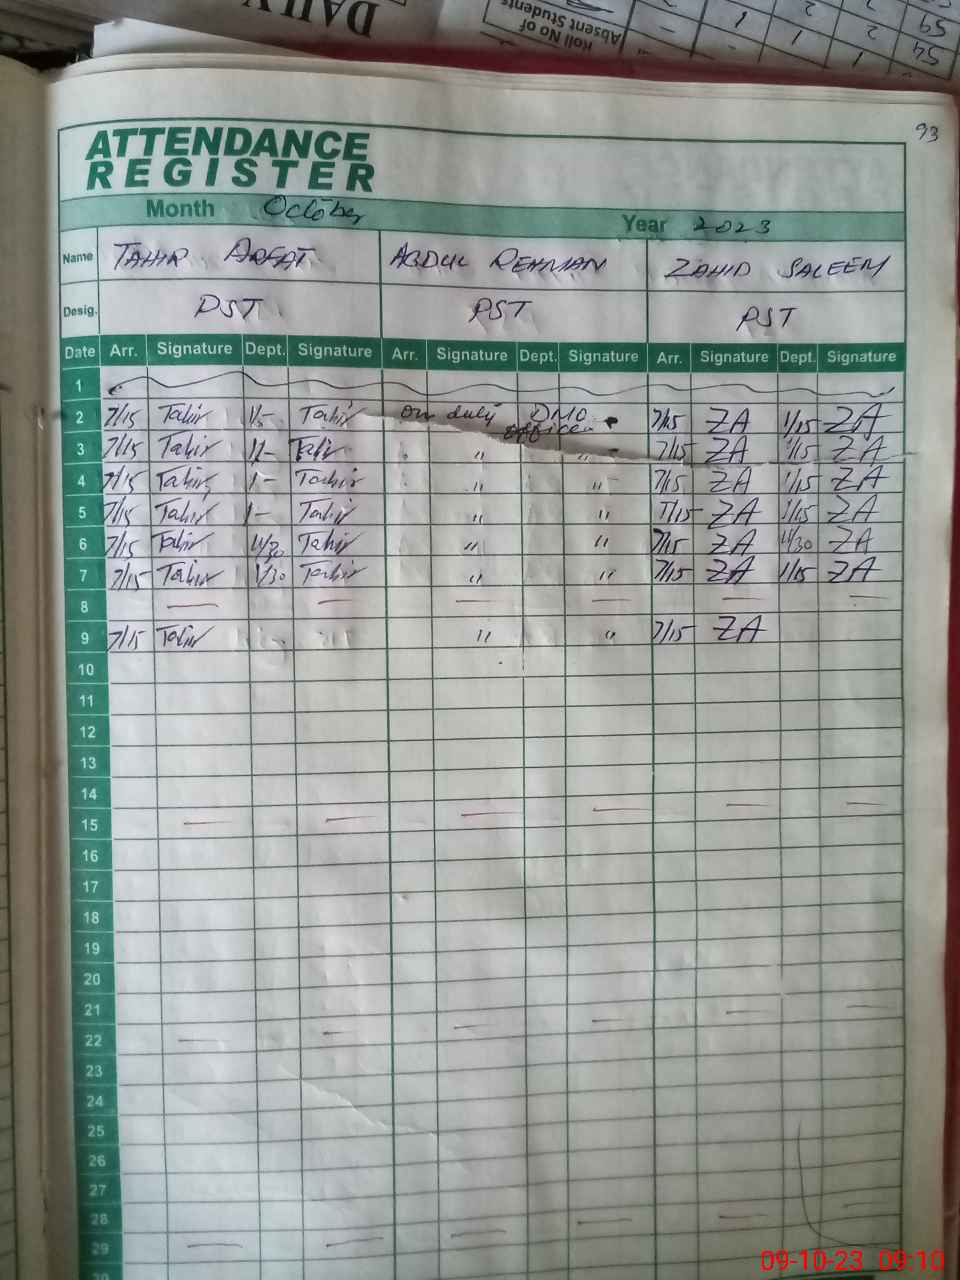 DAILY
Roll No of
Absent Students
93
ATTENDANCE
REGISTER
Month October Year 2023
Name TAHIR ARFAT ABDUL REHMAN ZAHID SALEEM
Desig. PST PST PST
Date Arr. Signature Dept. Signature Arr. Signature Dept. Signature Arr. Signature Dept. Signature
1
2 7/15 Tahir Tahir on duty DMO office 7/15 ZA 1/15 ZA
3 7/15 Tahir Tahir " " 7/15 ZA 1/15 ZA
4 7/15 Tahir Tahir " " 7/15 ZA 1/15 ZA
5 7/15 Tahir Tahir " " 7/15 ZA 1/15 ZA
6 7/15 Tahir 11/30 Tahir " " 7/15 ZA 11/30 ZA
7 7/15 Tahir 1/30 Tahir " " 7/15 ZA 1/15 ZA
8
9 7/15 Tahir " " 7/15 ZA
10
11
12
13
14
15
16
17
18
19
20
21
22
23
24
25
26
27
28
29
30
09-10-23 09:10